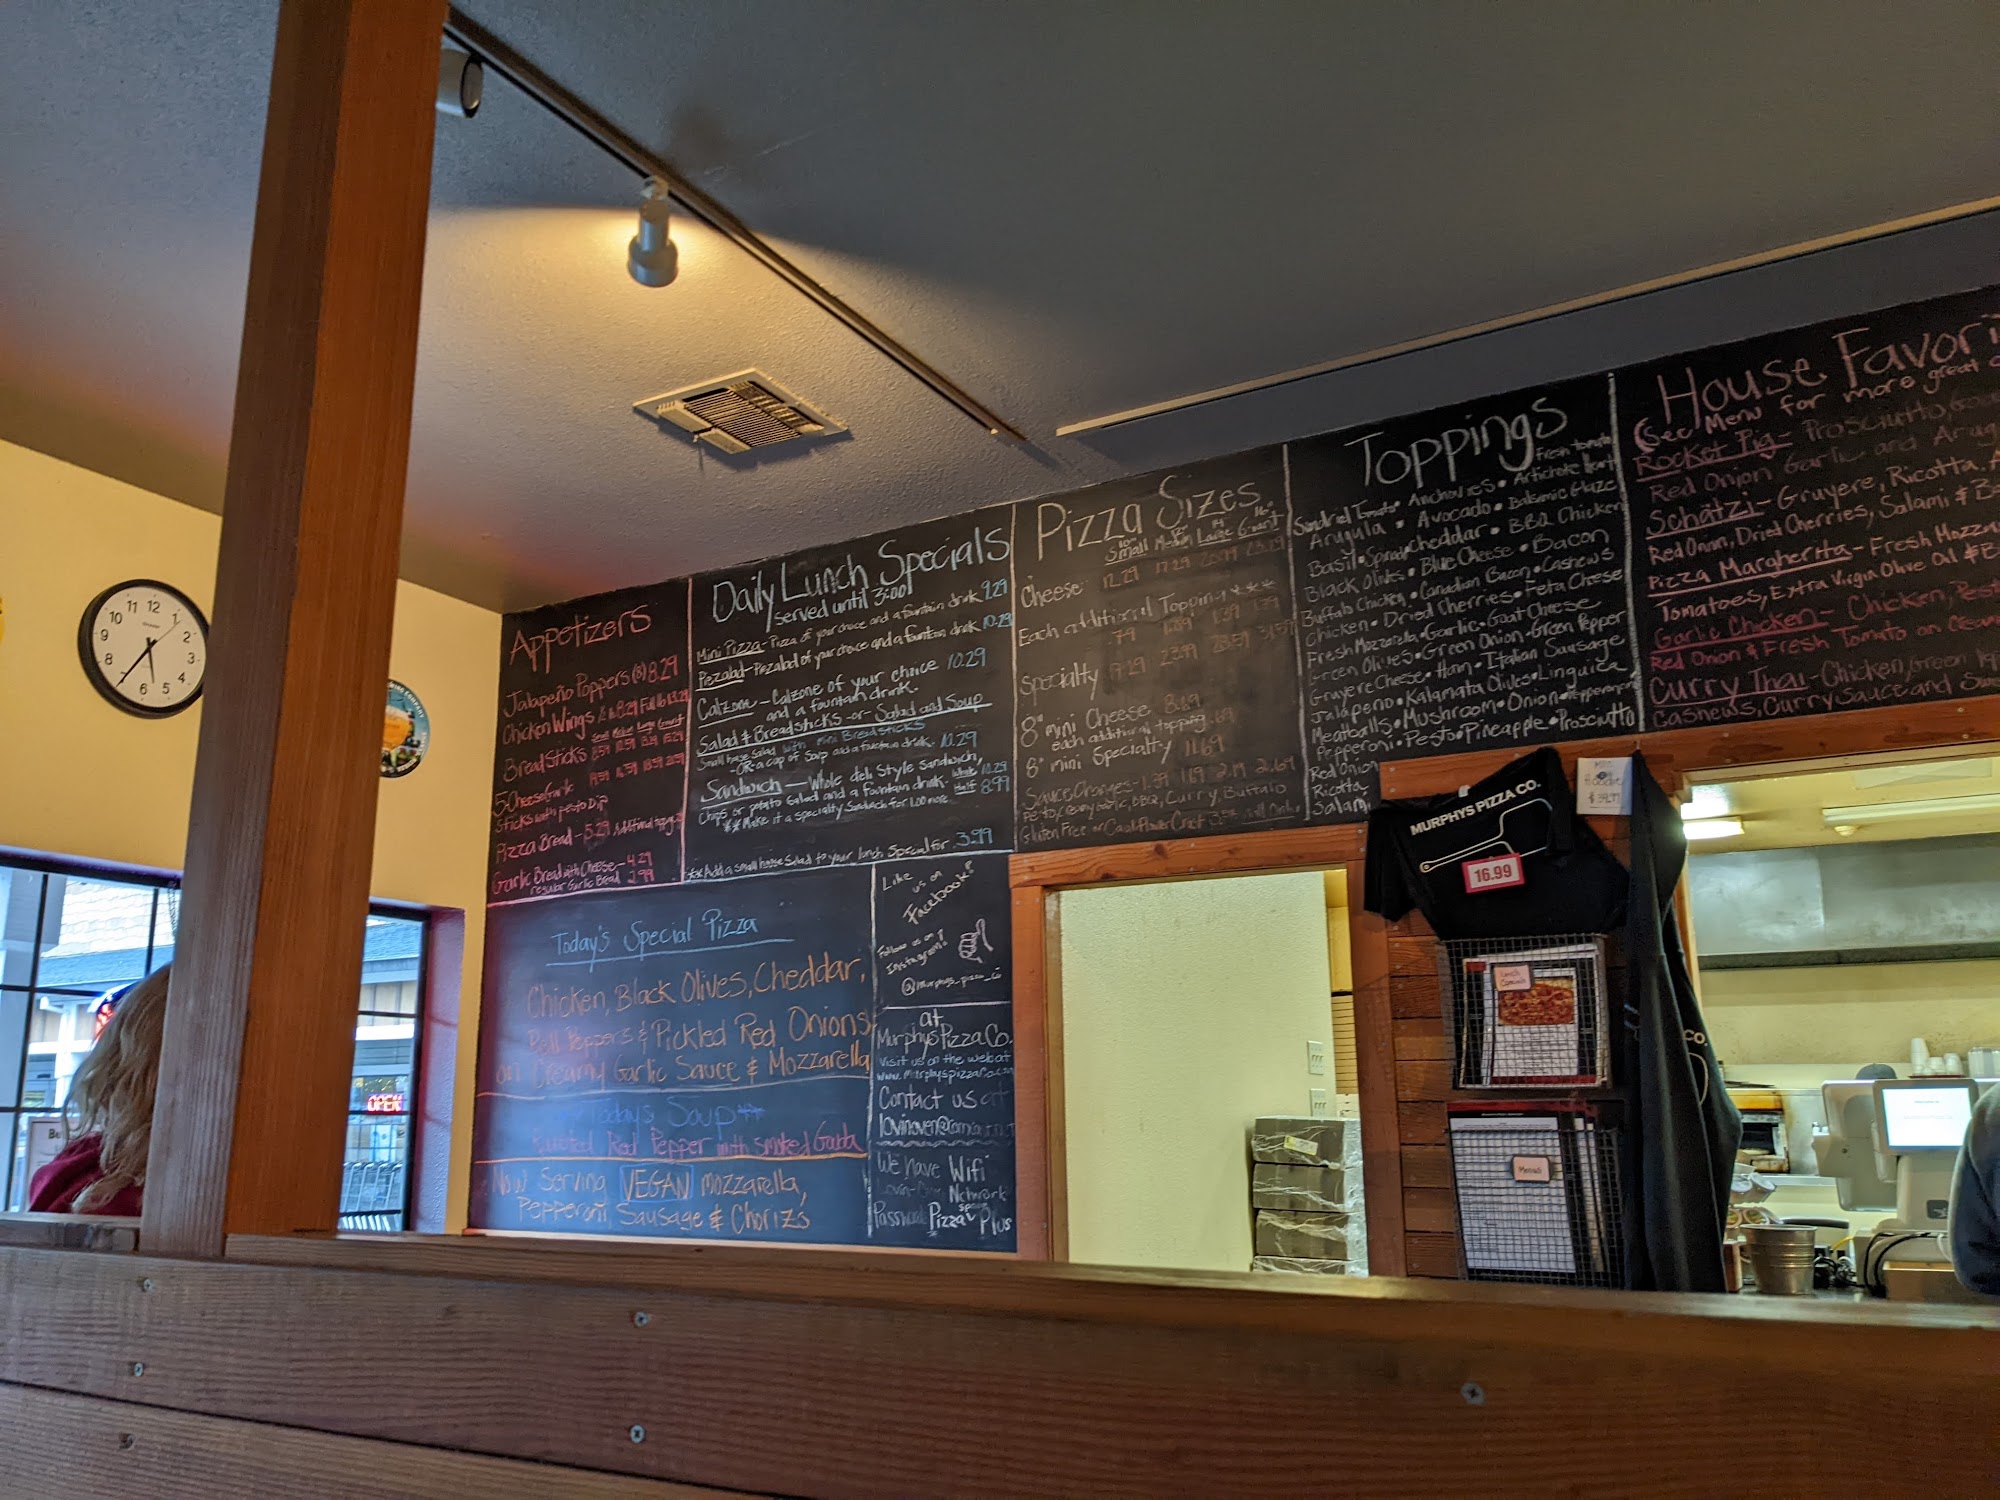 Appetizers
Jalapeño Poppers (8) 8.29
Chicken Wings 1/2 lb 8.29 Full lb 13.29
Small Medium Large Giant
Bread Sticks
5 Cheese Garlic
Sticks with pesto Dip
Pizza Bread - 5.29
Garlic Bread with Cheese - 4.29
regular Garlic Bread 2.99
Daily Lunch Specials
served until 3:00!
Mini Pizza - Pizza of your choice and a fountain drink 9.29
Pizzalad - Pizzalad of your choice and a fountain drink 10.29
Calzone - Calzone of your choice 10.29
and a fountain drink.
Salad & Breadsticks -or- Salad and Soup
Small house Salad with Mini Breadsticks
-OR- a cup of Soup and a fountain drink. 10.29
Sandwich - Whole deli Style sandwich,
Chips or potato Salad and a fountain drink. Whole 10.29
Half 8.99
**Make it a specialty Sandwich for 1.00 more.
**Add a small house Salad to your lunch Special for 3.99
Pizza Sizes
10" 12" 14" 16"
Small Medium Large Giant
Cheese 12.29 17.29 20.99 23.29
Each additional Topping ***
Specialty
8" mini Cheese 8.19
each additional topping .89
8" mini Specialty 11.69
Sauce Changes - 1.39 1.89 2.19 2.69
Pesto, Creamy Garlic, BBQ, Curry, Buffalo
Gluten Free or Cauliflower Crust
Toppings
Fresh tomato
Sundried Tomato • Anchovies • Artichoke Heart
Arugula • Avocado • Balsamic Glaze
Basil • Cheddar • BBQ Chicken
Black Olives • Blue Cheese • Bacon
Buffalo Chicken • Canadian Bacon • Cashews
Chicken • Dried Cherries • Feta Cheese
Fresh Mozzarella • Garlic • Goat Cheese
Green Olives • Green Onion • Green Pepper
Gruyere Cheese • Ham • Italian Sausage
Jalapeño • Kalamata Olives • Linguica
Meatballs • Mushroom • Onion • Pepperoncini
Pepperoni • Pesto • Pineapple • Prosciutto
Red Onion
Ricotta
Salami
House Favori
(See Menu for more great
Rocket Pig - Prosciutto
Red Onion Garlic and Arug
Schätzi - Gruyere, Ricotta,
Red Onion, Dried Cherries, Salami, & Ba
Pizza Margherita - Fresh Mozza
Tomatoes, Extra Virgin Olive Oil & B
Garlic Chicken - Chicken, Pest
Red Onion & Fresh Tomato on Cream
Curry Thai - Chicken, Green
Cashews, Curry Sauce and
Today's Special Pizza
Chicken, Black Olives, Cheddar,
Bell Peppers & Pickled Red Onions
on Creamy Garlic Sauce & Mozzarella
Today's Soup
Roasted Red Pepper with Smoked Gouda
Now Serving VEGAN mozzarella,
Pepperoni, Sausage & Chorizo
Like
us on
Facebook!
Follow us on
Instagram!
@murphys_pizza_co
at
Murphys Pizza Co.
Visit us on the web at
www.Murphyspizzaco.com
Contact us at
We have Wifi
Network
Password: Pizza space Plus
MURPHYS PIZZA CO.
16.99
Hoodie
Lunch
Menus
CO.
OPEN
12 1 2 3 4 5 6 7 8 9 10 11